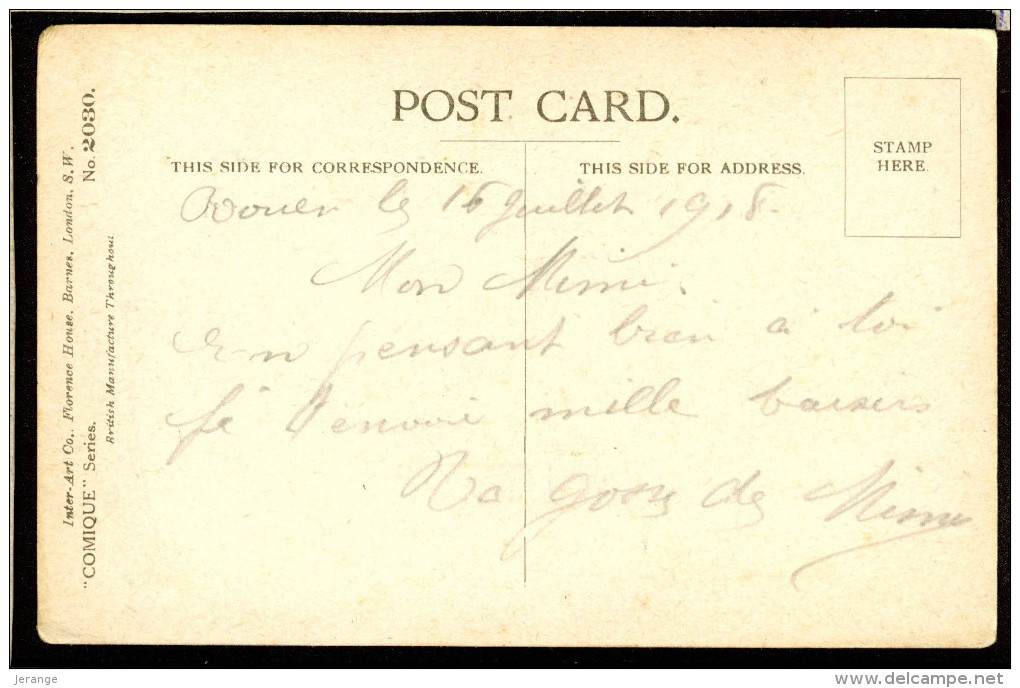 POST CARD.
THIS SIDE FOR CORRESPONDENCE.
THIS SIDE FOR ADDRESS.
STAMP
HERE
Rouen le 16 Juillet 1918.
Mon Mimi.
En pensant bien à toi
je t'envoie mille baisers
Ta gosse de Mimi
Inter-Art Co., Florence House, Barnes, London, S.W.
"COMIQUE" Series. No. 2030.
British Manufacture Throughout
jerange
www.delcampe.net